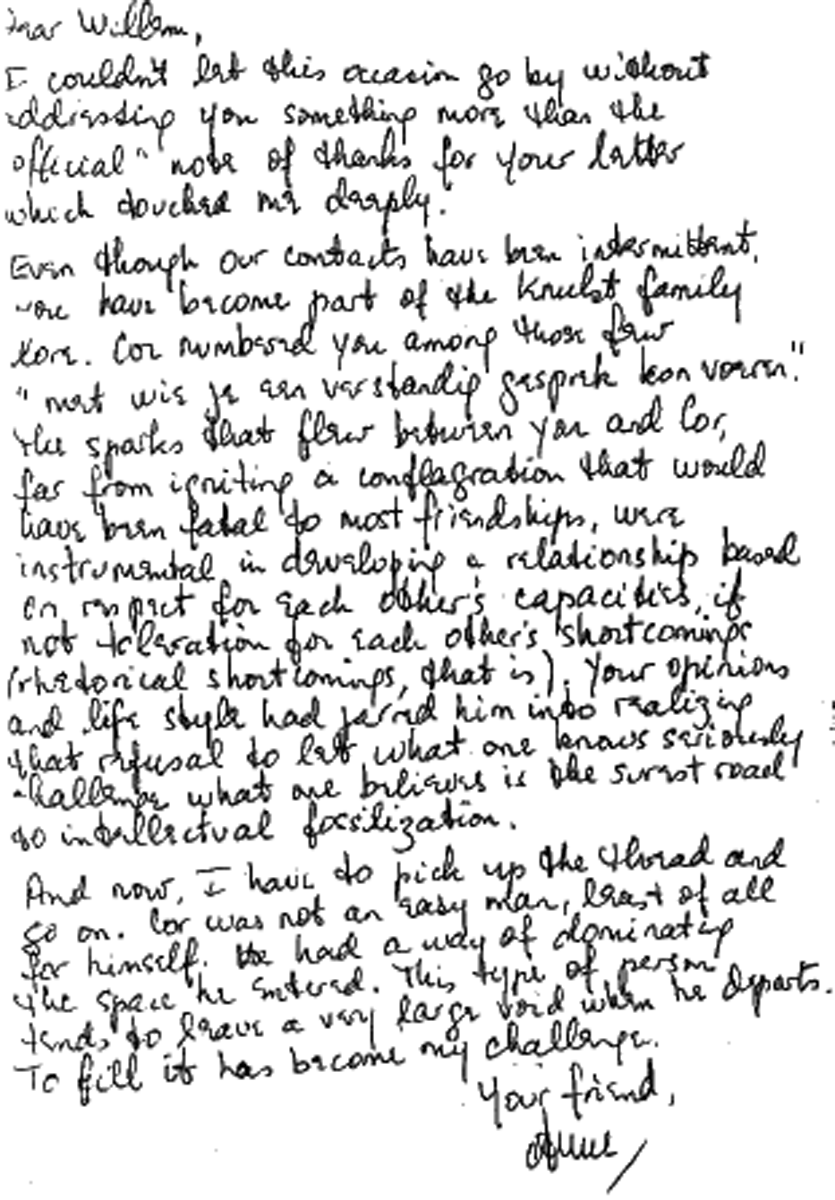 Dear Willem,
I couldn't let this occasion go by without
addressing you something more than the
official" note of thanks for your letter
which touched me deeply.
Even though our contacts have been intermittent,
you have become part of the Kruckt family
lore. Cor numbered you among those few
"met wie je een verstandig gesprek kon voeren."
The sparks that flew between you and Cor,
far from igniting a conflagration that would
have been fatal to most friendships, were
instrumental in developing a relationship based
on respect for each other's capacities, if
not toleration for each other's shortcomings
(rhetorical shortcomings, that is). Your opinions
and life style had jarred him into realizing
that refusal to let what one knows seriously
challenge what one believes is the surest road
to intellectual fossilization.
And now, I have to pick up the thread and
go on. Cor was not an easy man, least of all
for himself. He had a way of dominating
the space he entered. This type of person
tends to leave a very large void when he departs.
To fill it has become my challenge.
Your friend,